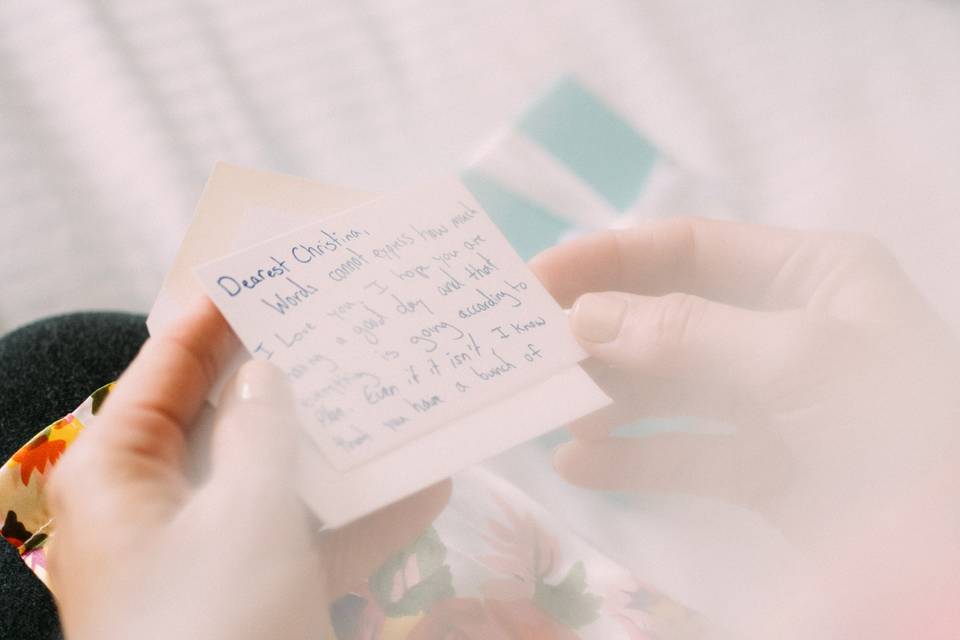 Dearest Christina,
Words cannot express how much
I Love you. I hope you are
having a good day and that
everything is going according to
Plan. Even if it isn't I know
that you have a bunch of